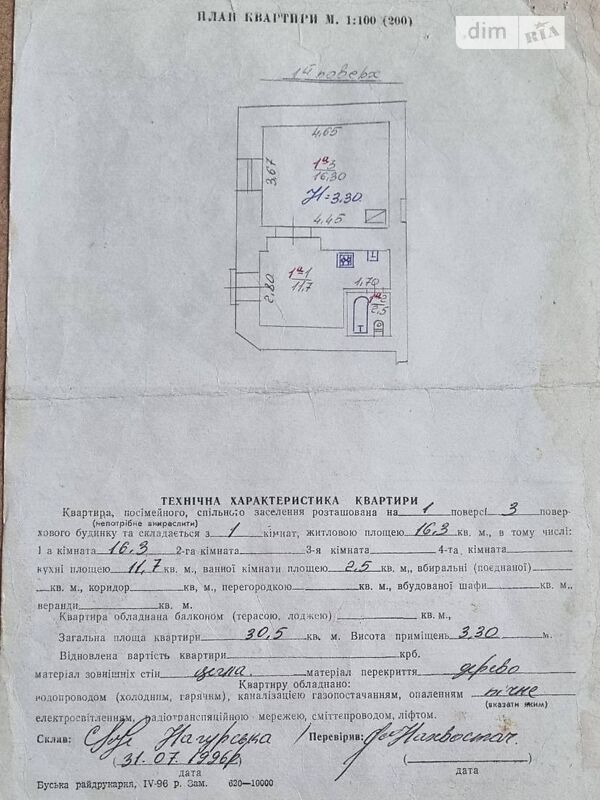 ПЛАН КВАРТИРИ М. 1:100 (200)
dim RIA
1й поверх
4,65
1а 3
16,30
3,67
H=3,30
4,45
1а 1
11,7
2,80
1,70
1а 2
2,5
ТЕХНІЧНА ХАРАКТЕРИСТИКА КВАРТИРИ
Квартира, посімейного, спільного заселення розташована на 1 поверсі 3 повер-
(непотрібне викреслити)
хового будинку та складається з 1 кімнат, житловою площею 16,3 кв. м., в тому числі:
1 а кімната 16,3 2-га кімната 3-я кімната 4-та, кімната
кухні площею 11,7 кв. м., ванної кімнати площею 2,5 кв. м., вбиральні (поєднаної)
кв. м., коридор кв. м., перегородкою кв. м., вбудованої шафи кв. м.,
веранди кв. м.
Квартира обладнана балконом (терасою, лоджею) кв. м.,
Загальна площа квартири 30,5 кв. м. Висота приміщень 3,30 м.
Відновлена вартість квартири крб.
матеріал зовнішніх стін цегла. матеріал перекриття дерево
Квартиру обладнано:
водопроводом (холодним, гарячим), каналізацією газопостачанням, опаленням пічне
(вказати яким)
електросвітленням, радіотрансляційною мережею, сміттєпроводом, ліфтом.
Склав: Нагурська Перевірив:
31.07.1996р.
дата дата
Буська райдрукарня, IV-96 р. Зам. 620—10000